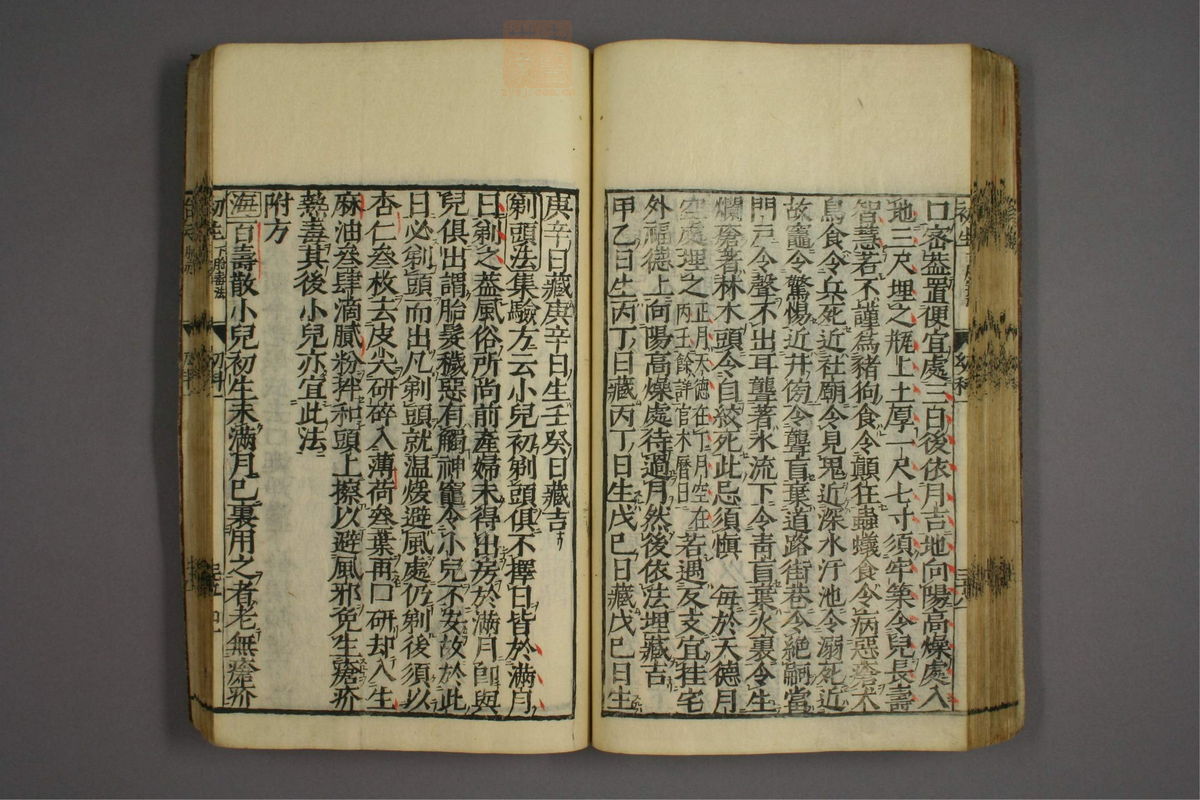 口密蓋置便宜處三日後依月吉地向陽高燥處入
地三尺埋之瓶上土厚一尺七寸須牢築令兒長壽
智慧若不謹為豬狗食令顛狂蟲蟻食令病惡瘡犬
鳥食令兵死近社廟令見鬼近深水汙池令溺死近
故竈令驚惕近井傍令聾盲棄道路街巷令絕嗣當
門戶令聲不出耳聾著水流下令青盲棄火裏令生
爛瘡著林木頭令自絞死此忌須愼 每於天德月
空處理之正月天德在丁月空在丙壬餘詳官本曆日若遇反支宜在宅
外福德上向陽高燥處待過月然後依法埋藏吉
甲乙日生丙丁日藏丙丁日生戊己日藏戊己日生
庚辛日藏庚辛日生壬癸日藏吉
剃頭法集驗方云小兒初剃頭俱不擇日皆於滿月
日剃之蓋風俗所尚前產婦未得出房於滿月卽與
兒俱出謂胎髮穢惡有觸神竈令小兒不安故於此
日必剃頭而出凡剃頭就温煖避風處仍剃後須以
杏仁叁枚去皮尖研碎入薄荷叁葉再口研却入生
麻油叁肆滴膩粉拌和頭上擦以避風邪免生瘡疥
熱毒其後小兒亦宜此法
附方
海一百壽散小兒初生未滿月已裏用之者老無瘡疥